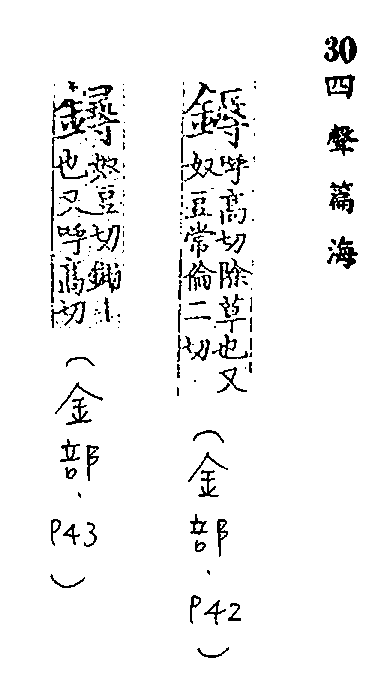 30四聲篇海
鎒呼高切除草也又
奴豆常倫二切
(金部.P42)
奴豆切鋤土
也又呼高切
(金部.P43)